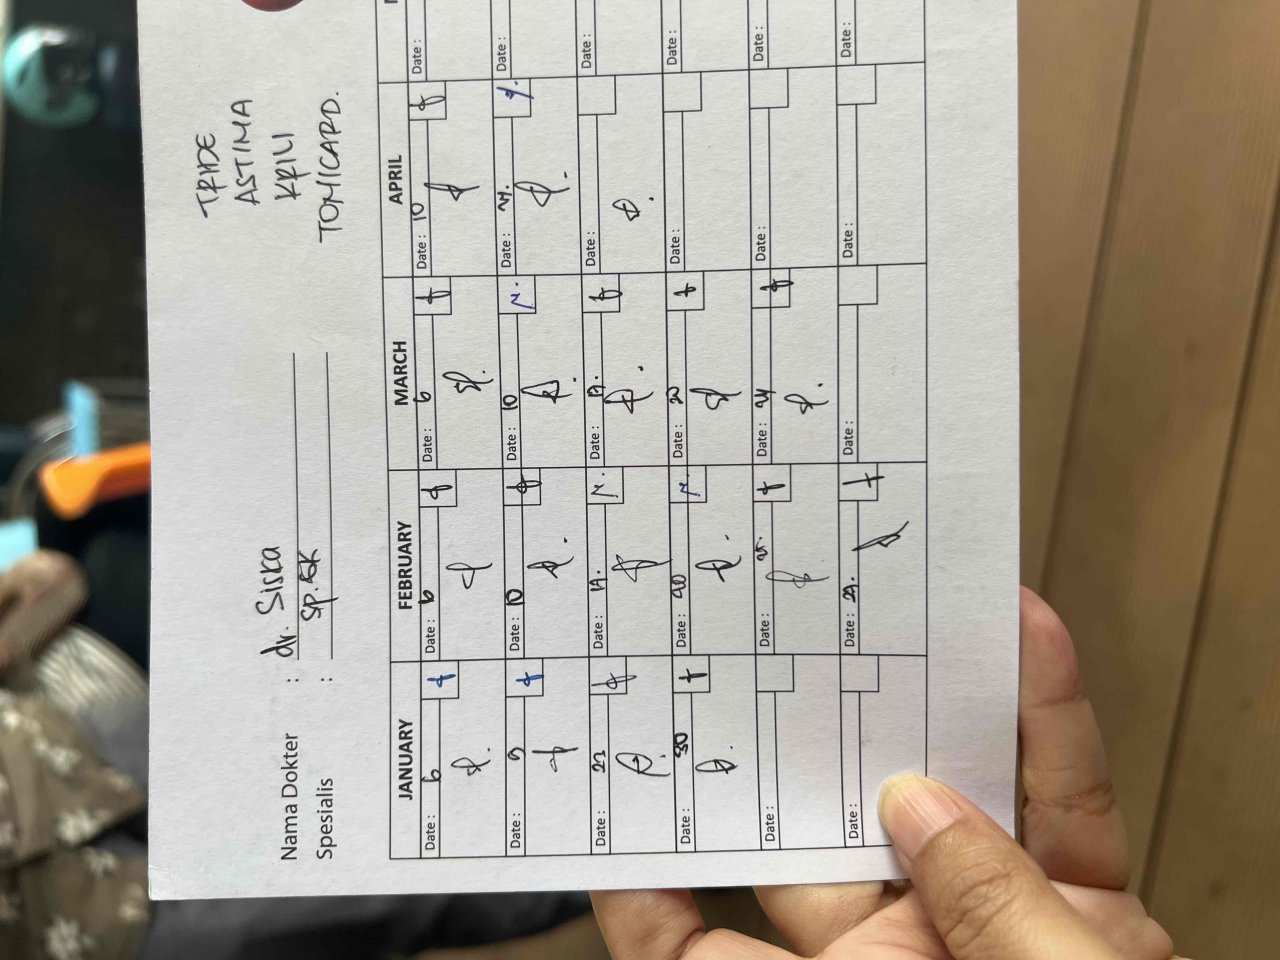 TRIDE
ASTIMA
KRILI
TOMICARD.
Nama Dokter : dr. Siska
Spesialis : SP.
JANUARY FEBRUARY MARCH APRIL
Date : 6 Date : 6 Date : 6 Date : 10 Date :
Date : 9 Date : 10 Date : 10 Date : 24. Date :
Date : 23 Date : Date : Date : Date :
Date : 30 Date : 20 Date : 20 Date : Date :
Date : Date : 25. Date : 24 Date : Date :
Date : Date : 29. Date : Date : Date :